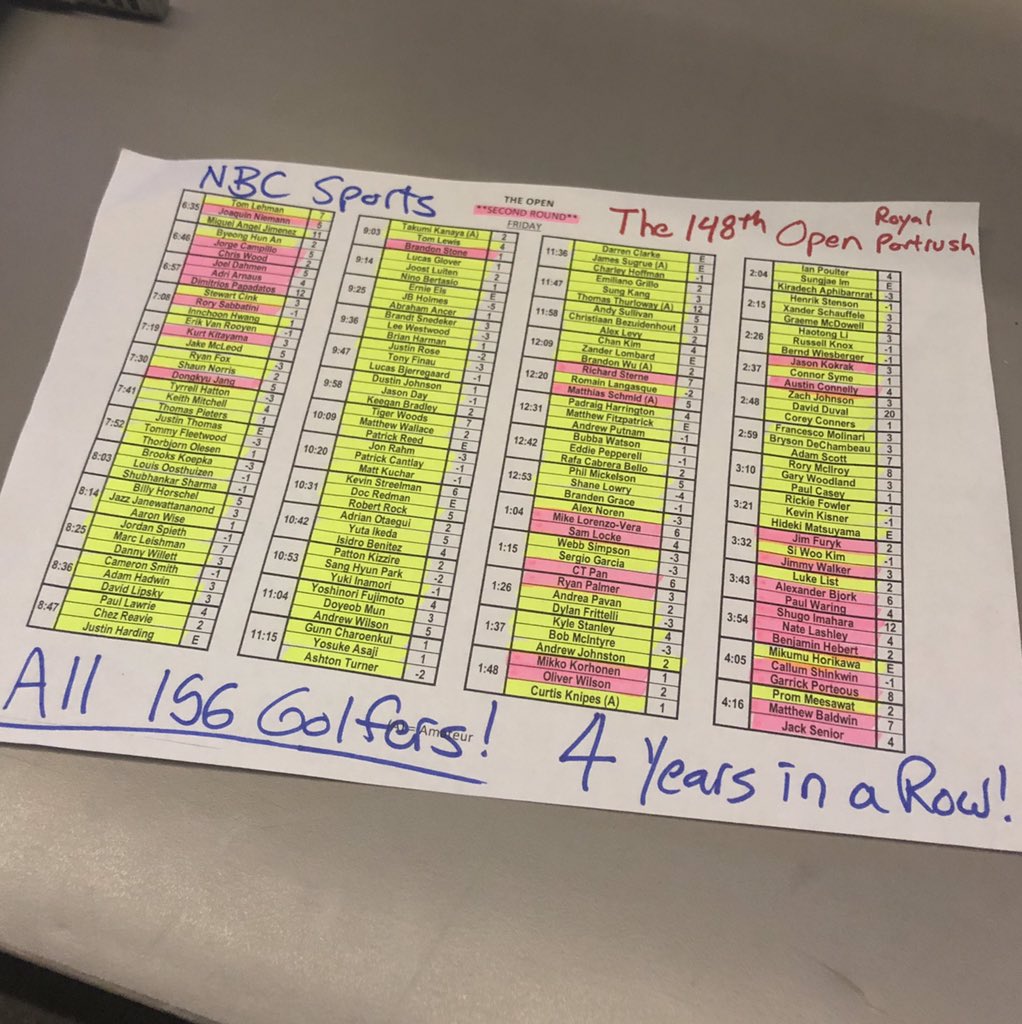 NBC Sports
THE OPEN
**SECOND ROUND**
FRIDAY
The 148th Open
Royal
Portrush
6:35 Tom Lehman
Joaquin Niemann
Miguel Angel Jimenez
6:46 Byeong Hun An
Jorge Campillo
Chris Wood
6:57 Joel Dahmen
Adri Arnaus
Dimitrios Papadatos
7:08 Stewart Cink
Rory Sabbatini
Innchoon Hwang
7:19 Erik Van Rooyen
Kurt Kitayama
Jake McLeod
7:30 Ryan Fox
Shaun Norris
Dongkyu Jang
7:41 Tyrrell Hatton
Keith Mitchell
Thomas Pieters
7:52 Justin Thomas
Tommy Fleetwood
Thorbjorn Olesen
8:03 Brooks Koepka
Louis Oosthuizen
Shubhankar Sharma
8:14 Billy Horschel
Jazz Janewattananond
Aaron Wise
8:25 Jordan Spieth
Marc Leishman
Danny Willett
8:36 Cameron Smith
Adam Hadwin
David Lipsky
8:47 Paul Lawrie
Chez Reavie
Justin Harding
9:03 Takumi Kanaya (A)
Tom Lewis
Brandon Stone
9:14 Lucas Glover
Joost Luiten
Nino Bertasio
9:25 Ernie Els
JB Holmes
Abraham Ancer
9:36 Brandt Snedeker
Lee Westwood
Brian Harman
9:47 Justin Rose
Tony Finau
Lucas Bjerregaard
9:58 Dustin Johnson
Jason Day
Keegan Bradley
10:09 Tiger Woods
Matthew Wallace
Patrick Reed
10:20 Jon Rahm
Patrick Cantlay
Matt Kuchar
10:31 Kevin Streelman
Doc Redman
Robert Rock
10:42 Adrian Otaegui
Yuta Ikeda
Isidro Benitez
10:53 Patton Kizzire
Sang Hyun Park
Yuki Inamori
11:04 Yoshinori Fujimoto
Doyeob Mun
Andrew Wilson
11:15 Gunn Charoenkul
Yosuke Asaji
Ashton Turner
11:36 Darren Clarke
James Sugrue (A)
Charley Hoffman
11:47 Emiliano Grillo
Sung Kang
Thomas Thurloway (A)
11:58 Andy Sullivan
Christiaan Bezuidenhout
Alex Levy
12:09 Chan Kim
Zander Lombard
Brandon Wu (A)
12:20 Richard Sterne
Romain Langasque
Matthias Schmid (A)
12:31 Padraig Harrington
Matthew Fitzpatrick
Andrew Putnam
12:42 Bubba Watson
Eddie Pepperell
Rafa Cabrera Bello
12:53 Phil Mickelson
Shane Lowry
Branden Grace
1:04 Alex Noren
Mike Lorenzo-Vera
Sam Locke
1:15 Webb Simpson
Sergio Garcia
CT Pan
1:26 Ryan Palmer
Andrea Pavan
Dylan Frittelli
1:37 Kyle Stanley
Bob McIntyre
Andrew Johnston
1:48 Mikko Korhonen
Oliver Wilson
Curtis Knipes (A)
2:04 Ian Poulter
Sungjae Im
Kiradech Aphibarnrat
2:15 Henrik Stenson
Xander Schauffele
Graeme McDowell
2:26 Haotong Li
Russell Knox
Bernd Wiesberger
2:37 Jason Kokrak
Connor Syme
Austin Connelly
2:48 Zach Johnson
David Duval
Corey Conners
2:59 Francesco Molinari
Bryson DeChambeau
Adam Scott
3:10 Rory McIlroy
Gary Woodland
Paul Casey
3:21 Rickie Fowler
Kevin Kisner
Hideki Matsuyama
3:32 Jim Furyk
Si Woo Kim
Jimmy Walker
3:43 Luke List
Alexander Bjork
Paul Waring
3:54 Shugo Imahara
Nate Lashley
Benjamin Hebert
4:05 Mikumu Horikawa
Callum Shinkwin
Garrick Porteous
4:16 Prom Meesawat
Matthew Baldwin
Jack Senior
All 156 Golfers!
4 Years in a Row!